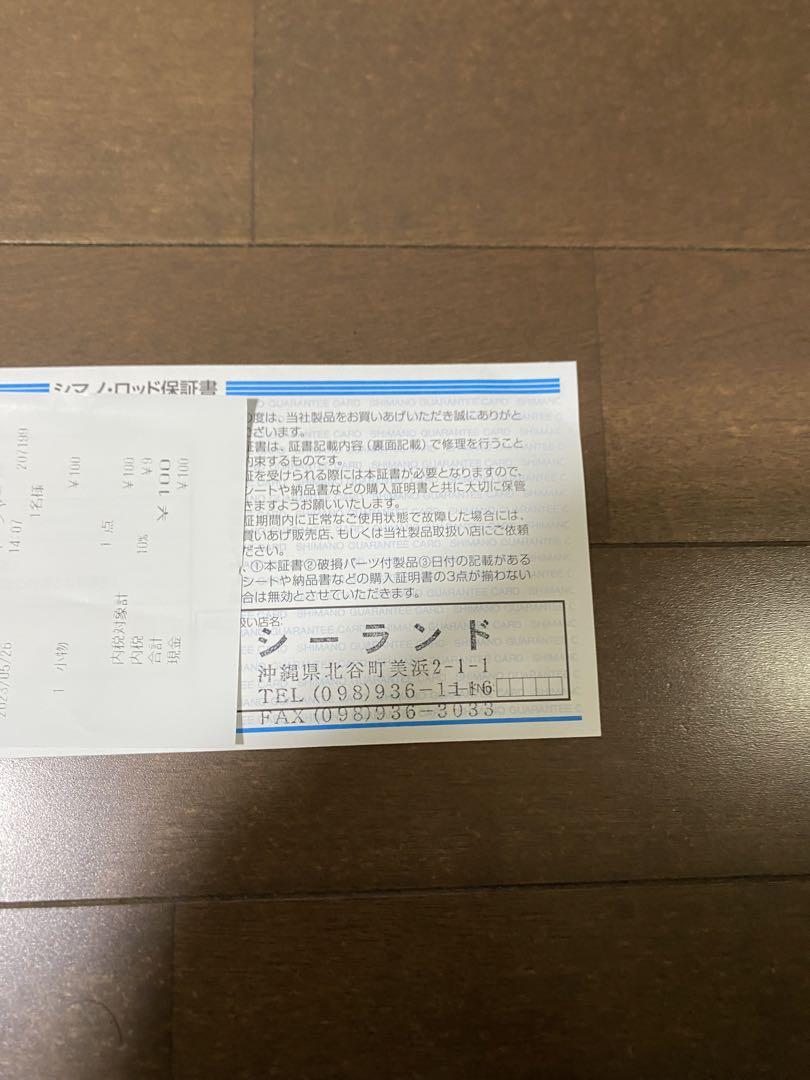 シマノ・ロッド保証書
の度は、当社製品をお買いあげいただき誠にありがと
ございます。
証書は、証書記載内容（裏面記載）で修理を行うこと
約束するものです。
証を受けられる際には本証書が必要となりますので、
シートや納品書などの購入証明書と共に大切に保管
きますようお願いいたします。
証期間内に正常なご使用状態で故障した場合には、
買いあげ販売店、もしくは当社製品取扱い店にご依頼
ださい。
、①本証書②破損パーツ付製品③日付の記載がある
シートや納品書などの購入証明書の3点が揃わない
合は無効とさせていただきます。
扱い店名:
シーランド
沖縄県北谷町美浜2-1-1
TEL (098)936-1116
FAX (098)936-3033
SHIMANO GUARANTEE CARD
2023/05/26 14:07 207199
1名様
1 小物 ¥100
1点
内税対象計 ¥100
内税 10% ¥9
合計 ¥100
現金 ¥100